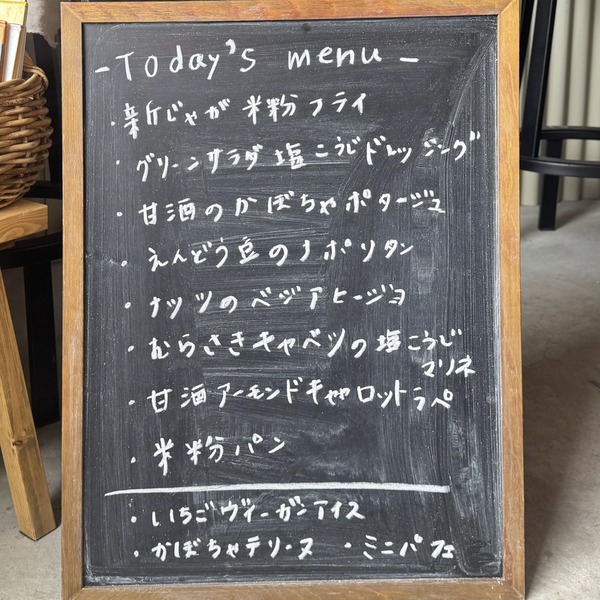 -Today's menu-
・新じゃが 米粉フライ
・グリーンサラダ 塩こうじドレッシング
・甘酒のかぼちゃポタージュ
・えんどう豆のナポリタン
・ナッツのベジアヒージョ
・むらさきキャベツの塩こうじ
マリネ
・甘酒アーモンドキャロットラペ
・米粉パン
・いちごヴィーガンアイス
・かぼちゃテリーヌ ・ミニパフェ